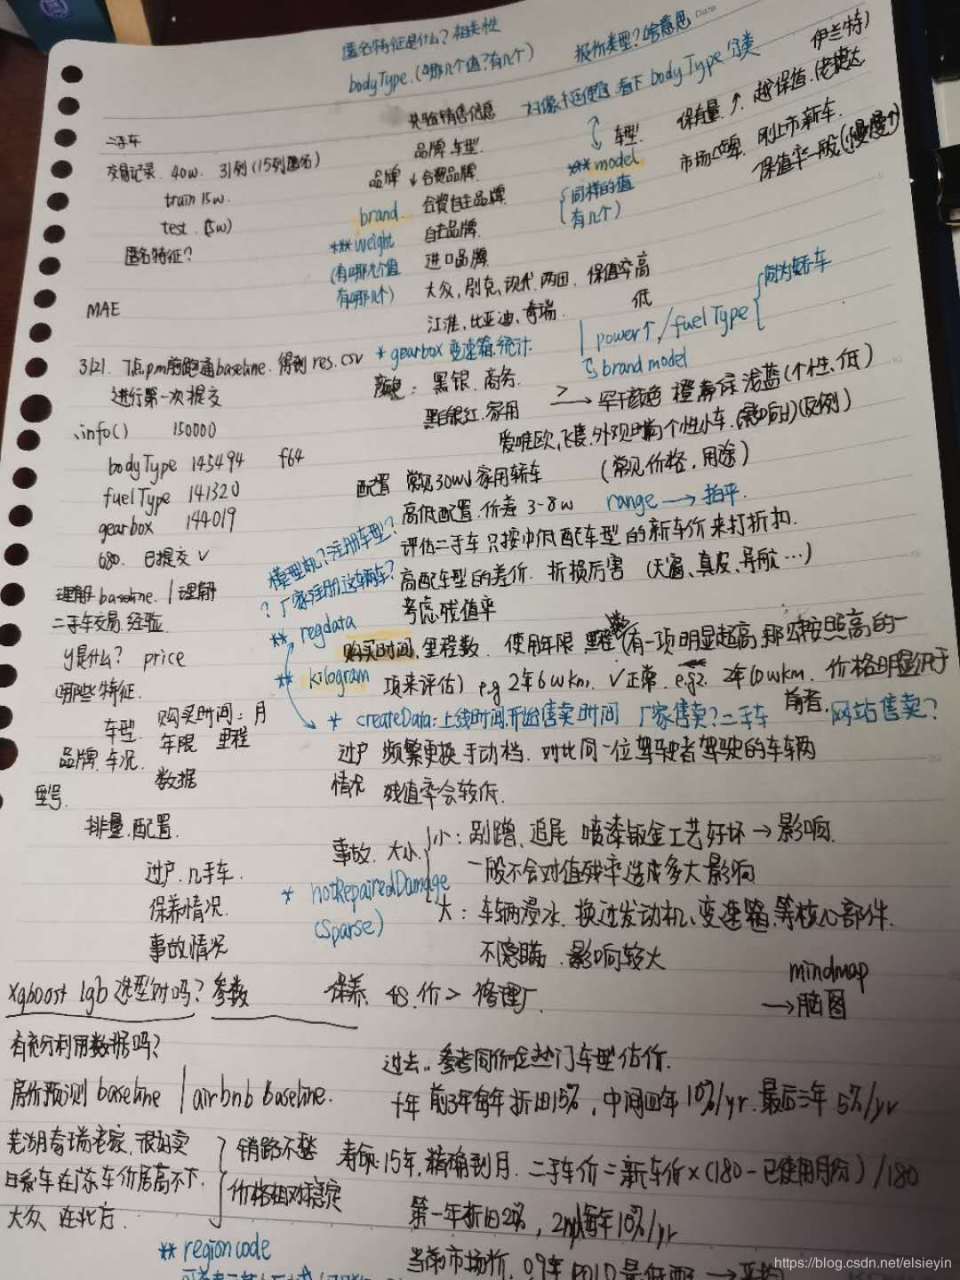 匿名特征是什么? 相关性
bodyType.(哪几个值?有几个)
报价类型?啥意思
看下 bodyType 分类
伊兰特)
二手车
交易记录. 40w. 31列 (15列匿名)
train 15w.
test. (5w)
匿名特征?
MAE
品牌 车型.
品牌 ↓ 合资品牌.
brand. 合资自主品牌
*** weight 自主品牌
(有哪几个值 进口品牌
有哪几个)
大众, 别克, 现代, 两田. 保值率高
江淮, 比亚迪, 奇瑞. 低
车型.
*** model
{同样的值
有几个)
保有量 ↑. 越保值. (老捷达
刚上市新车.
保值率一般 (慢慢↑)
同为轿车
power↑ / fuelType
brand model
* gearbox 变速箱. 统计.
3/21. 7点pm前跑通baseline. 得到 res.csv
进行第一次提交
.info() 150000
bodyType 145494 f64
fuelType 141320
gearbox 144019
日提交 √
理解 baseline. / 理解
二手车交易. 经验
y是什么? price
哪些特征.
车型. 购买时间: 月
品牌. 车况. 年限 里程
数据
型号.
排量. 配置.
过户. 几手车.
保养情况.
事故情况
颜色: 黑银. 商务.
黑白银红. 家用
罕见颜色 橙 青 棕 浅蓝 (个性、低)
(常见价格, 用途)
配置 常见30w以 家用轿车
高低配置. 价差 3-8w range → 拍平.
评估二手车 只按中低配车型 的新车价来打折扣.
高配车型的差价. 折损厉害 (天窗、真皮、导航…)
考虑残值率
? 厂家注册这辆车?
** regdata
购买时间, 里程数. 使用年限 (有一项明显超高, 那 按照高的一
** kilogram 项来评估) eg 2年6wkm. √正常. eg2. 2年10wkm. 价格明显低于
前者.
* createData: 上线时间. 开始售卖时间 厂家售卖? 二手车 网站售卖?
过户 频繁更换手动档. 对比同一位驾驶者驾驶的车辆
情况 残值率会较低.
事故. 大小 { 小: 剐蹭、追尾 喷漆钣金工艺好坏 → 影响.
一般不会对值残率造成多大影响
* notRepairedDamage
(Sparse)
大: 车辆浸水. 换过发动机、变速箱. 等核心部件.
不隐瞒. 影响较大
mindmap
→ 脑图
xgboost lgb 选型对吗? 参数
保养. 4S. 价 > 修理厂
有充分利用数据吗?
房价预测 baseline / airbnb baseline.
过去.. 参考同价位热门车型估价.
十年 前3年每年折旧15%, 中间四年 10%/yr. 最后三年 5%/yr
芜湖奇瑞老家, 很好卖 } 销路不愁
日系车在广东车价居高不下. 价格相对稳定
大众 在北方.
寿命15年, 精确到月. 二手车价 = 新车价 × (180 - 已使用月份) / 180
第一年折旧20%, 2nd每年10%/yr
** regioncode
当前市场价. 09年 POLO 是低配 → 平均
https://blog.csdn.net/elsieyin